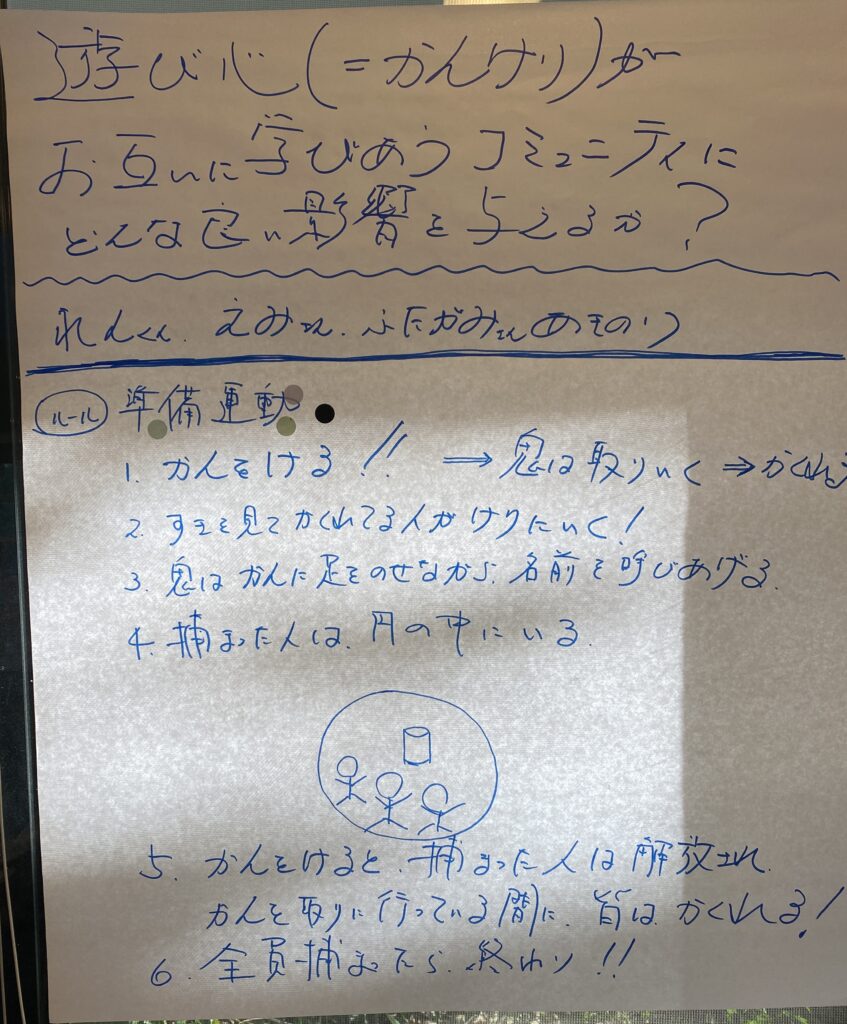 遊び心(=かんけり)が
お互いに学びあうコミュニティに
どんな良い影響を与えるか?
れんくん、えみさん、ふたがみさん あきのり
ルール 準備運動
1. かんをける!! ⇒鬼は取りいく⇒かくれる
2. すきを見てかくれてる人がけりにいく!
3. 鬼はかんに足をのせながら、名前を呼びあげる.
4. 捕まった人は、円の中にいる.
5. かんをけると、捕まった人は解放され、
かんを取りに行っている間に、皆はかくれる!
6. 全員捕またら、終わり!!